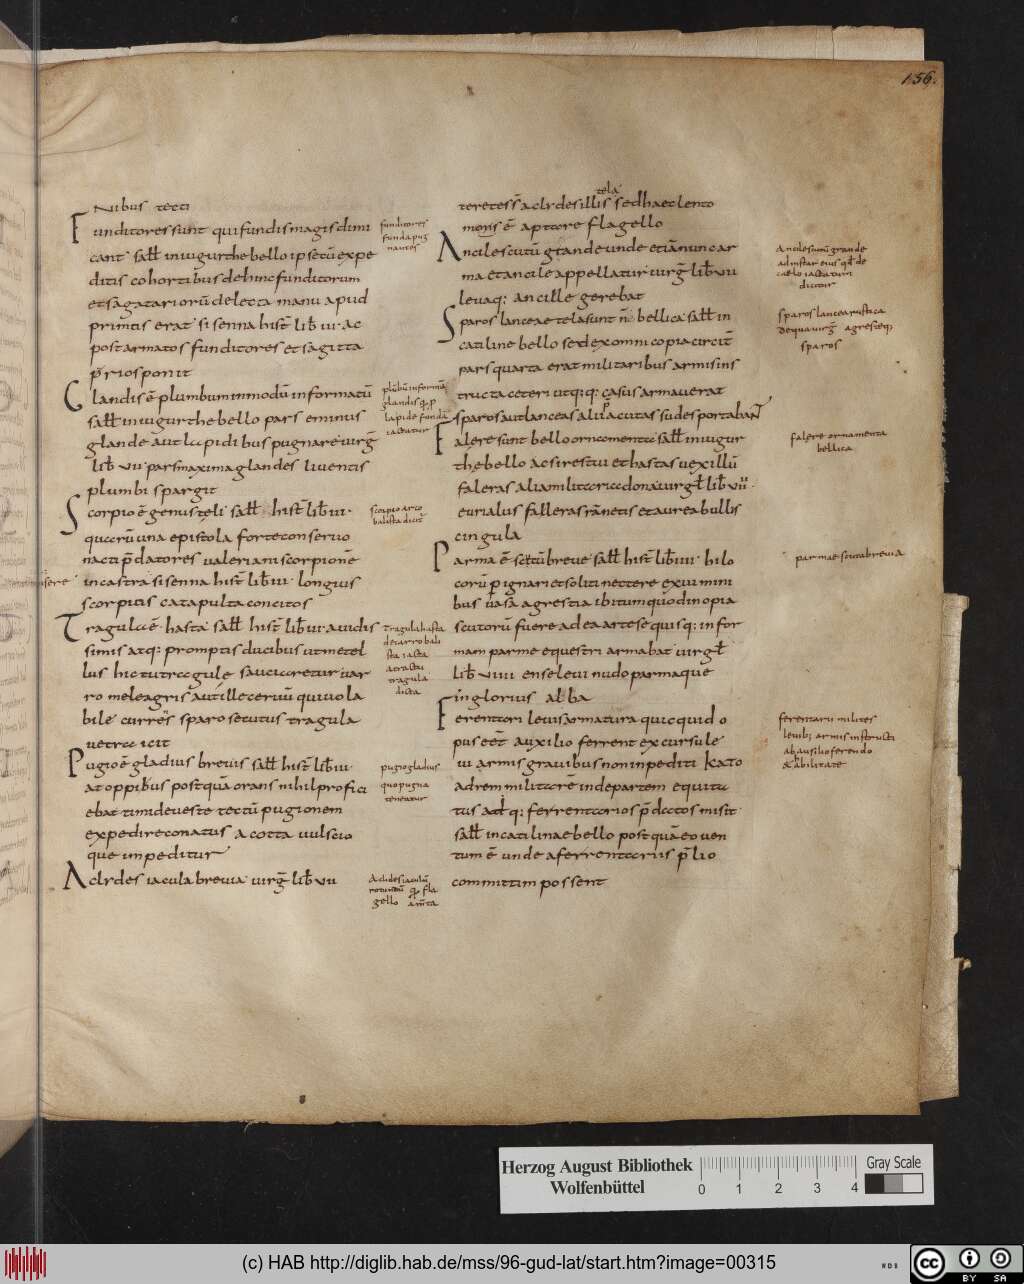 156.
Nibus tecti
Funditores sunt qui fundis magis dimi
cant sall in iugurthe bello ipse cū expe
ditis cohortibus dehinc funditorum
et sagatariorū delecta manu apud
primus erat sisenna hist lib iii ac
post armatos funditores et sagitta
rios ponit
Glandis ē plumbum in modū informatū
sall in iugurthe bello pars eminus
glande aut lapidibus pugnare uirg
lib vii pars maxima glandes liuentis
plumbi spargit
Scorpio ē genus teli sall hist lib iii
quarū una epistola forte con seruo
nacti p̄datores ualeriani scorpionē
in castra sisenna hist lib iii longius
scorpitis catapulta concitos
Tragula ē hasta sall hist lib iii auidis
simis atq: promptis ducibus ut metel
lus hic tutragule sauciaretur uar
ro meleagris aut ille ceruū qui uola
bile currēs sparo secutus tragula
ue traicit
Pugio ē gladius breuis sall hist lib iii
at oppibus postquā orans nihil profici
ebat timide ueste tectū pugionem
expedire conatus a cotta uulscio
que impeditur
Aclydes iacula breuia uirg lib vii
funditores
funda pug
nantes
plūbū informā
glandis
lapide fundā
iactatur
scorpio arco
balista dicit
Tragula hasta
dicta
pugio gladius
quo pugna
teneatur
Aclides iaculū
rotundū fla
gello
tela
teretes s̄ aclydes illis sed haec lento
mons ē aptare flagello
Ancile scutū grande unde etiā nunc ar
ma et ancile appellatur uirg lib vii
leuaq: ancille gerebat
Sparos lanceae tela sunt n̄ bellica sall in
catiline bello sed ex omni copia circit
pars quarta erat militaribus armis ins
tructa ceteri ut q:q: casus armauerat
sparos aut lanceas alii p̄acutas sudes portabant
Falere sunt bello ornamenta sall in iugur
the bello ac si res tui et hastas uexillū
faleras alia militaria dona uirgl lib viii
eurialus falleras rānetis et aurea bullis
cingula
Parma ē scutū breue sall hist lib iiii hi lo
corū p ignari et soliti nectere ex uimini
bus uasa agrestia ibi tum quod inopia
scutorū fuere ad ea arte se quisq: in for
mam parme equestri armabat uirgl
lib viiii ense leui nudo parma que
inglorius alba
Ferentari leuis armatura quicquid o
pus eēt auxilio ferrent ex cursule
ui armis grauibus non inpediti kato
ad rem militarē inde partem equita
tus atq: ferrentarios p̄datos misit
sall in catilinae bello postquā eo uen
tum ē unde a ferrentariis p̄lio
committi possent
Ancile scutū grande
ad instar eius qd de
caelo iactatum
dicitur
sparos lancea rustica
de qua uirg agrestiq:
sparos
falere ornamenta
bellica
parmae scuta breuia
ferentarii milites
leuib; armis instructi
ab auxilio ferendo
Herzog August Bibliothek
Wolfenbüttel
0 1 2 3 4
Gray Scale
(c) HAB http://diglib.hab.de/mss/96-gud-lat/start.htm?image=00315
WDB
cc BY SA